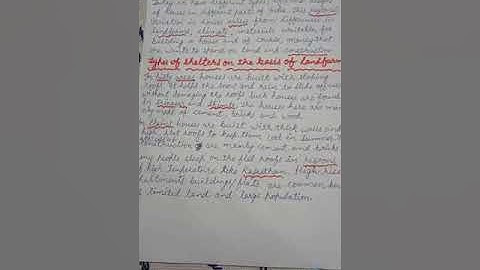 Today we have different types, and designs
of houses in different parts of India. This
variation in house arises from differences in
landforms, climate, materials available for
building a house and of course, money that
one wants to spend on land and construction.
Types of shelters on the basis of landform
In hilly areas houses are built with sloping
roofs. It helps the snow and rain to slide off
without damaging the roofs. Such houses are found
in and the houses here are
made of cement, bricks and wood.
houses are built with thick walls and
flat roofs to keep them cool in summer.
construction are mainly cement and bricks
many people sleep on the flat roofs in regions
of high temperature like Rajasthan. High rise
buildings/flats are common
limited land and large population.